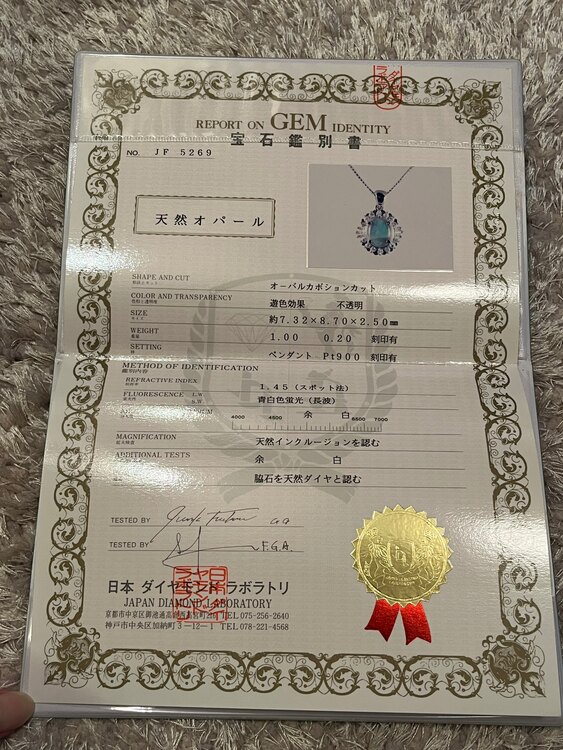 REPORT ON GEM IDENTITY
宝石鑑別書
NO. JF 5269
天然オパール
SHAPE AND CUT オーバルカボションカット
COLOR AND TRANSPARENCY 遊色効果 不透明
SIZE 約7.32×8.70×2.50mm
WEIGHT 1.00 0.20 刻印有
SETTING ペンダント Pt900 刻印有
METHOD OF IDENTIFICATION
鑑別内容
REFRACTIVE INDEX 1.45(スポット法)
FLUORESCENCE L.W. 青白色蛍光(長波)
S.W.
4000 4500 余白 6500 7000
MAGNIFICATION 天然インクルージョンを認む
ADDITIONAL TESTS 余白
脇石を天然ダイヤと認む
TESTED BY GG
TESTED BY F.G.A.
日本 ダイヤモンド ラボラトリ
JAPAN DIAMOND LABORATORY
京都市中京区御池通高倉西 TEL 075-256-2640
神戸市中央区加納町3-12-1 TEL 078-221-4568